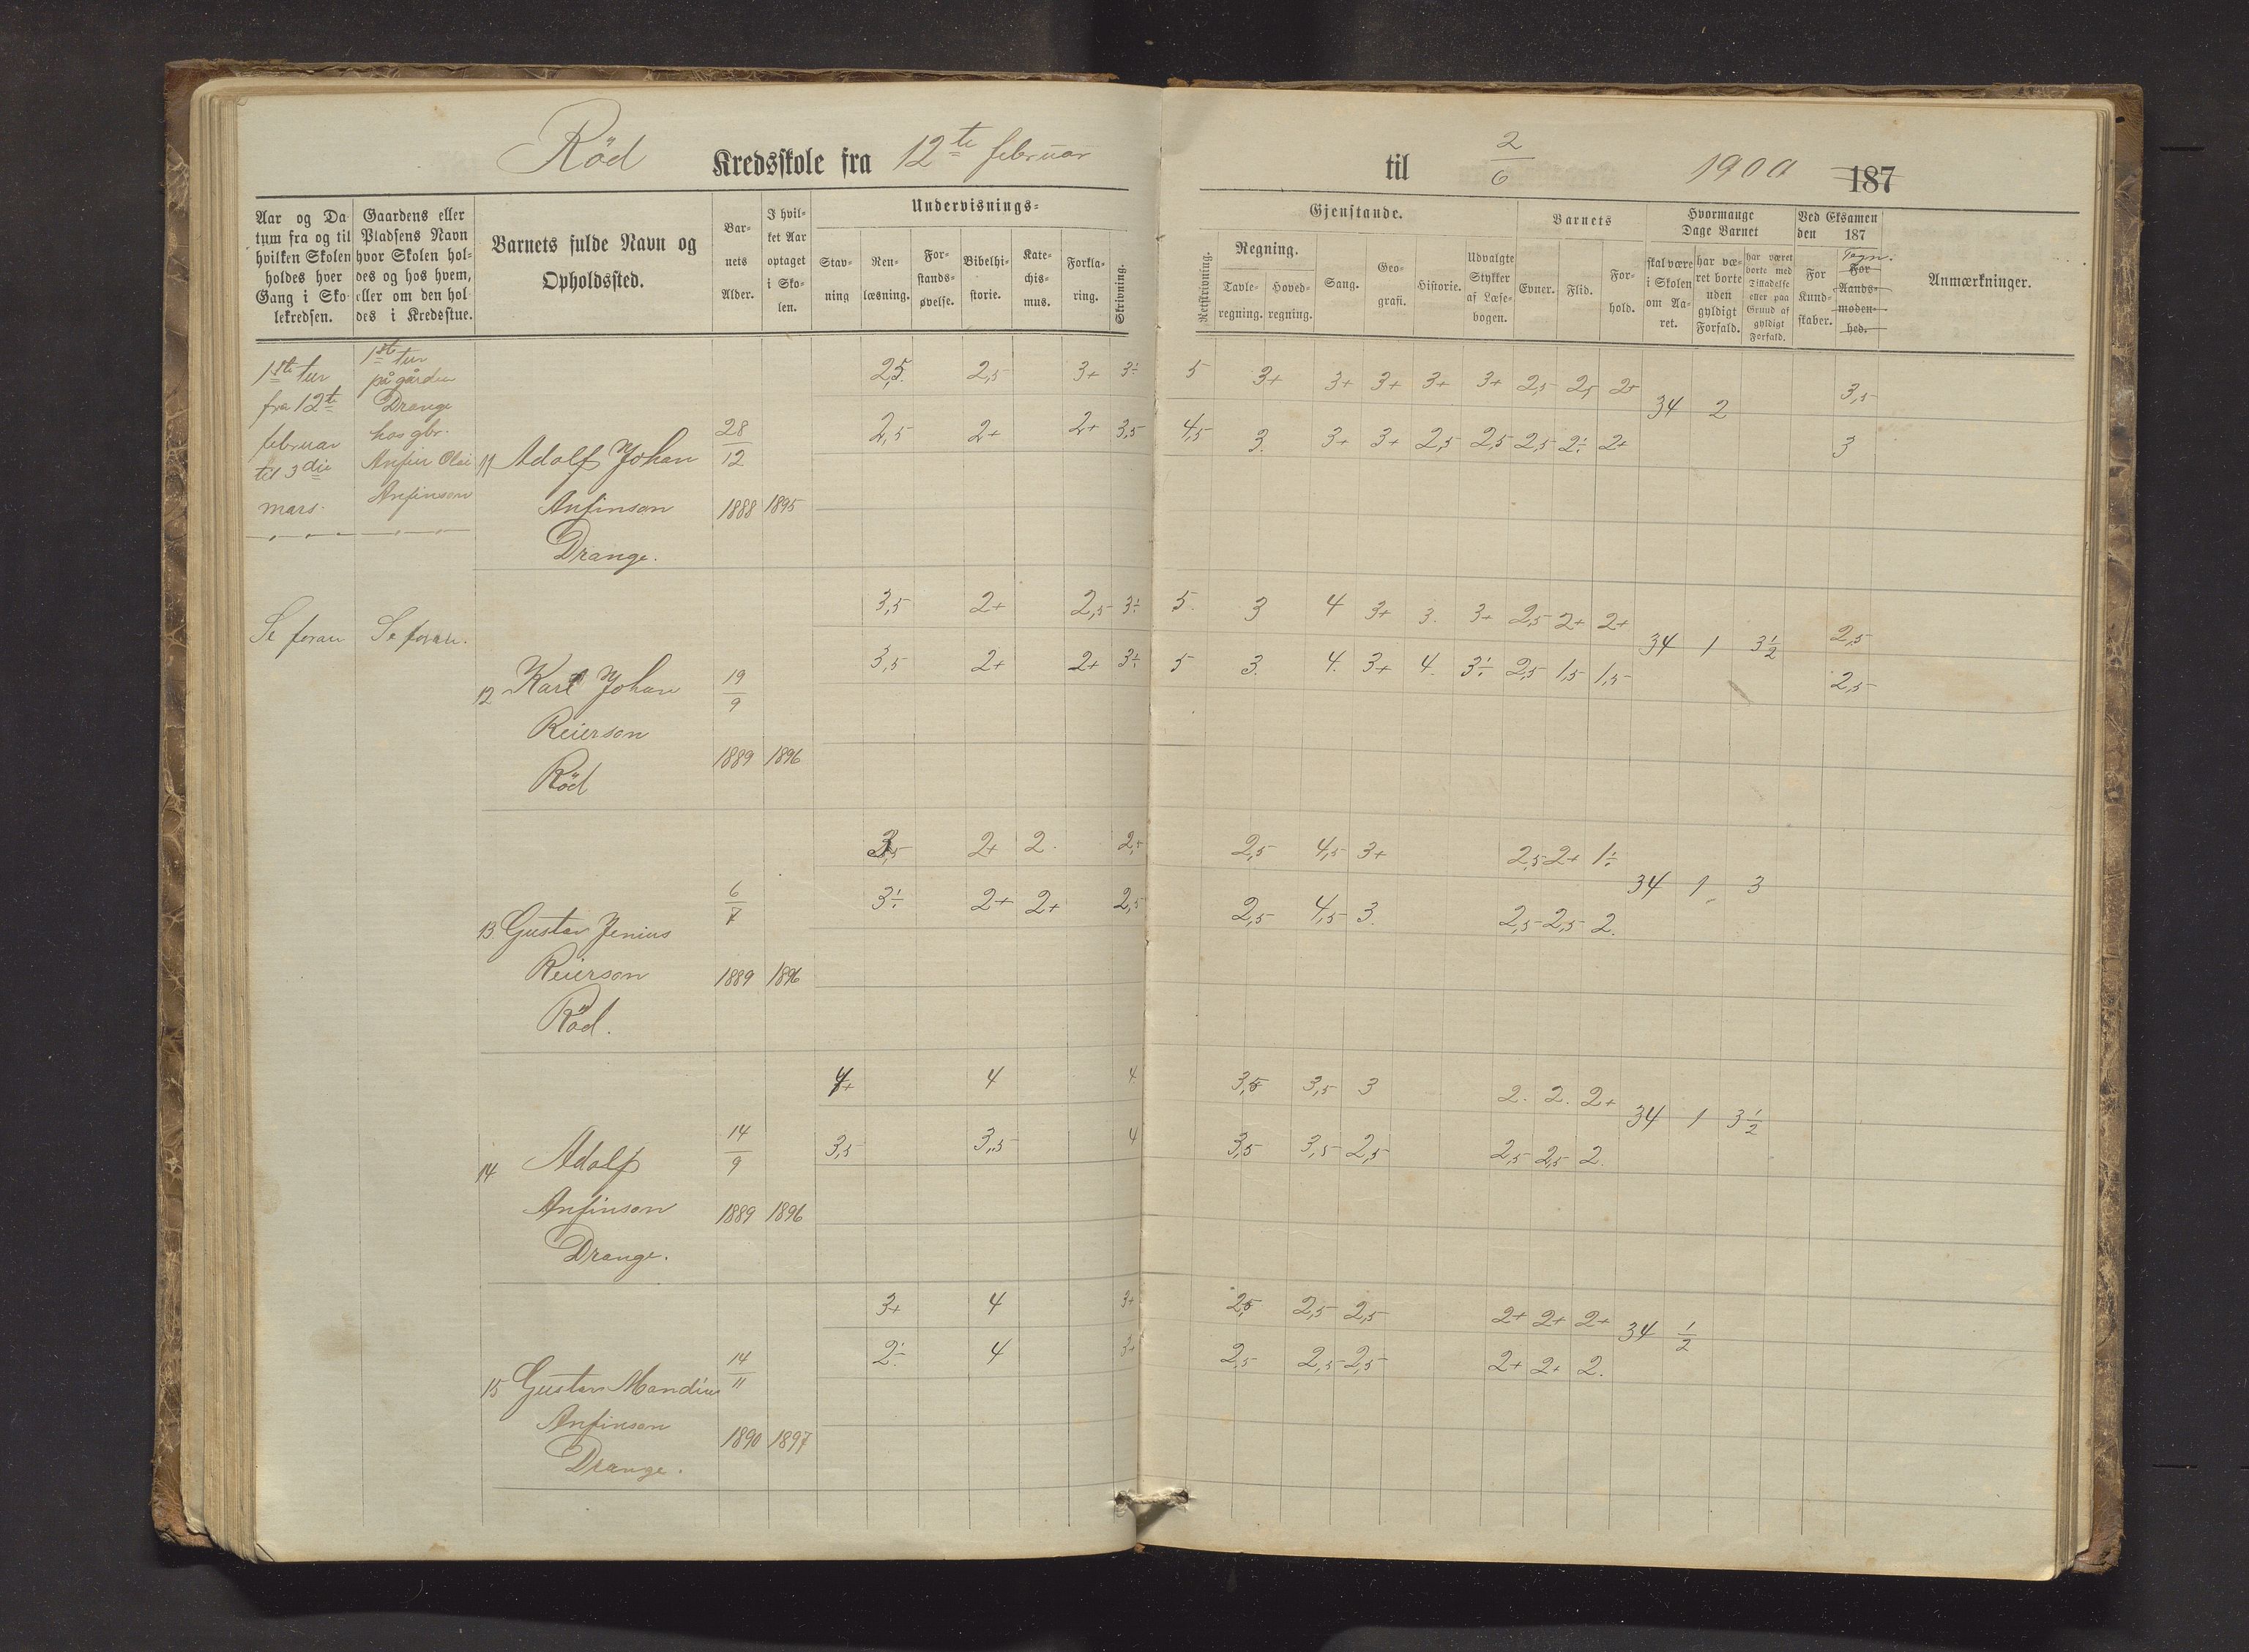 Röd Kredsskole fra 12te februar til 2/6 1900 187
Undervisnings- Gjenstande.
Aar og Da-
tum fra og til
hvilken Skolen
holdes hver
Gang i Sko-
lekredsen.
Gaardens eller
Pladsens Navn
hvor Skolen hol-
des og hos hvem,
eller om den hol-
des i Kredsstue.
Barnets fulde Navn og
Opholdssted.
Bar-
nets
Alder.
I hvil-
ket Aar
optaget
i Sko-
len.
Stav-
ning
Ren-
læsning.
For-
stands-
øvelse.
Bibelhi-
storie.
Kate-
chis-
mus.
Forkla-
ring.
Skrivning.
Retskrivning.
Regning.
Tavle-
regning.
Hoved-
regning.
Sang.
Geo-
grafi.
Historie.
Udvalgte
Stykker
af Læse-
bogen.
Barnets
Evner.
Flid.
For-
hold.
Hvormange
Dage Barnet
skal være
i Skolen
om Aa-
ret.
har væ-
ret borte
uden
gyldigt
Forfald.
har været
borte med
Tilladelse
eller paa
Grund af
gyldigt
Forfald.
Ved Eksamen
den 187
For
Kund-
skaber.
Tegn.
For
Aands-
moden-
hed.
Anmærkninger.
1ste tur
fra 12te
februar
til 3die
mars.
1ste tur
på gården
Drange
hos gbr.
Anfin Olai
Anfinson
2,5 2,5 3+ 3÷ 5 3+ 3+ 3+ 3+ 3+ 2,5 2,5 2+ 34 2 3,5
2,5 2+ 2+ 3,5 4,5 3. 3+ 3+ 2,5 2,5 2,5 2÷ 2+ 3
11 Adolf Johan 28/12
Anfinson 1888 1895
Drange.
Se foran Se foran.
3,5 2+ 2,5 3÷ 5. 3 4 3+ 3. 3+ 2,5 2+ 2+ 34 1 3½ 2,5
3,5 2+ 2+ 3÷ 5 3. 4. 3+ 4. 3÷ 2,5 1,5 1,5 2,5
12 Karl Johan 19/9
Reierson
1889 1896
Röd
3,5 2+ 2. 2,5 2,5 4,5 3+ 2,5 2+ 1÷ 34 1 3
3÷ 2+ 2+ 2,5 2,5 4,5 3. 2,5 2,5 2.
13 Gustav Jenius 6/7
Reierson 1889 1896
Röd.
4+ 4 4 3,5 3,5 3 2. 2. 2+ 34 1 3½
3,5 3,5 4 3,5 3,5 2,5 2,5 2,5 2.
14 Adolf 14/9
Anfinson 1889 1896
Drange.
3+ 4 3+ 2,5 2,5 2,5 2+ 2+ 2+ 34 ½
2÷ 4 3+ 2,5 2,5 2,5 2+ 2+ 2.
15 Gustav Mandius 14/11
Anfinson 1890 1897
Drange.